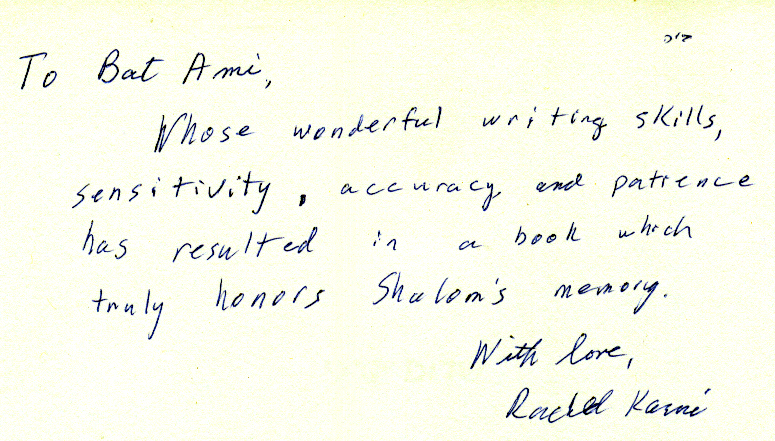 To Bat Ami,
Whose wonderful writing skills,
sensitivity, accuracy and patience
has resulted in a book which
truly honors Shalom's memory.
With love,
Rachel Karni